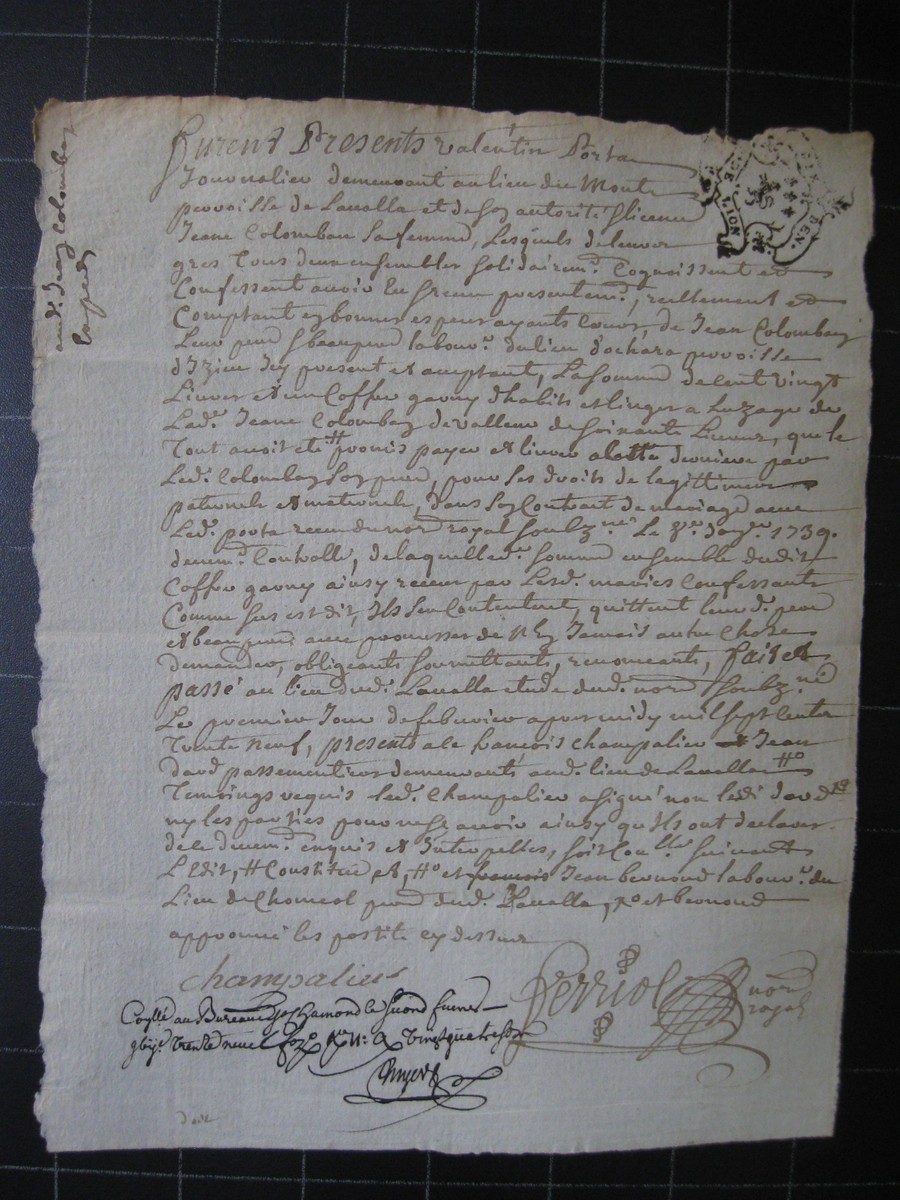 Furent Presents valentin Porta
Journalier demeurant au lieu du Monte
parroisse de Lavalla et de son autorité & licence
Jeane Colomban sa femme, Lesquels de leur
gres tous deux ensembles solidairemt. Cognoissent et
Confessent avoir heu & receu presentemt., reellement et
Comptant en bonnes especes ayants cours, de Jean Colomban
Leur pere & beaupere labour. du lieu d'ochara parroisse
d'Izieu Icy present et acceptant, La somme de Cent vingt
Livres et un Coffre garny d'habits et linges a Luzage de
Lade. Jeane Colomban de valleur de soixante Livres, que le
Tout avoit eté promis payer et livrer a la fette derniere par
Led. Colomban son pere, pour ses droits de legittimes
paternele et maternele, dans son Contract de mariage avec
Led. porta receu du nore. royal soubzné. Le 1739.
Controllé, de laquelle de. somme ensemble dudit
Coffre garny ainsy receu par Lesd. mariés Confessants
Comme sus est dit, Ils s'en Contentent, quittent leurd. pere
et beaupere avec promesses de n'en Jamais autre Chose
demander, obligeants soumettants, renonceants, fait et
passé au lieu dud. Lavalla etude dud. nore. soubzné.
Le premier Jour de febvrier apres midy mil sept Cents
Trente neuf, presents a ce françois Champalier et Jean
david passementiers demeurants aud. lieu de Lavalla
Temoings requis led. Champalier a signé non led. david
ny les parties pour ne sçavoir ainsy qu'Ils ont declaré
de ce enquis et Interpellés, soit Conllé. suivant
L'Edit, # Constitué et, #o et françois Jean bernond labour. du
Lieu de Chomeol parre. dud. Lavalla, et bernond
approuvé les postile cy dessus
Champalier
Perriol
nore
royal
Conllé. au Bureau de st Chamond le second fevrier
trente neuf fo. No. vingt quatre sols
aud. Jean Colomban
LION
GEN.